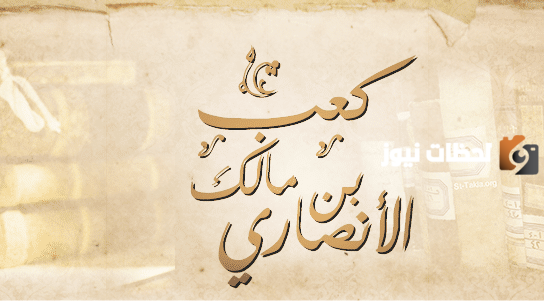 كعب
بن مالك
الأنصاري
لحظات نيوز